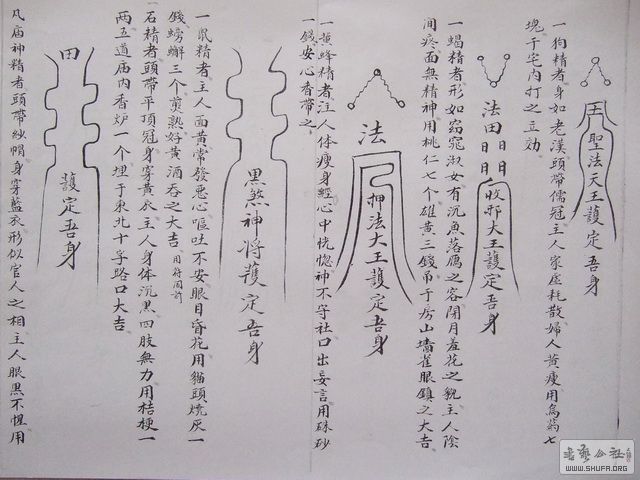 聖法天王護定吾身
一狗精者身如老漢頭帶儒冠主人家虛耗散婦人黃瘦用烏藥七
塊于宅内打之立効
法田日日日日收邪大王護定吾身
一蝎精者形如窈窕淑女有沉魚落雁之容閉月羞花之貌主人陰
間疼面無精神用桃仁七个雄黃三錢吊于房山墻雀眼鎮之大吉
法
押法大王護定吾身
一黃蜂精者注人体瘦身經心中恍惚神不守社口出妄言用硃砂
一錢安心香帶之
黑煞神将護定吾身
一鼠精者主人面黃常發惡心嘔吐不安眼目昏花用貓頭燒灰一
錢螃蠏三个煎熟好黃酒吞之大吉用符同前
石精者頭帶平頂冠身穿黃衣主人身体沉黑四肢無力用桔梗一
兩五道庙内香炉一个埋于東北十字路口大吉
田
護定吾身
凡庙神精者頭帶紗帽身穿藍衣形似官人之相主人眼黑不惺用
書藝公社
WWW.SHUFA.ORG